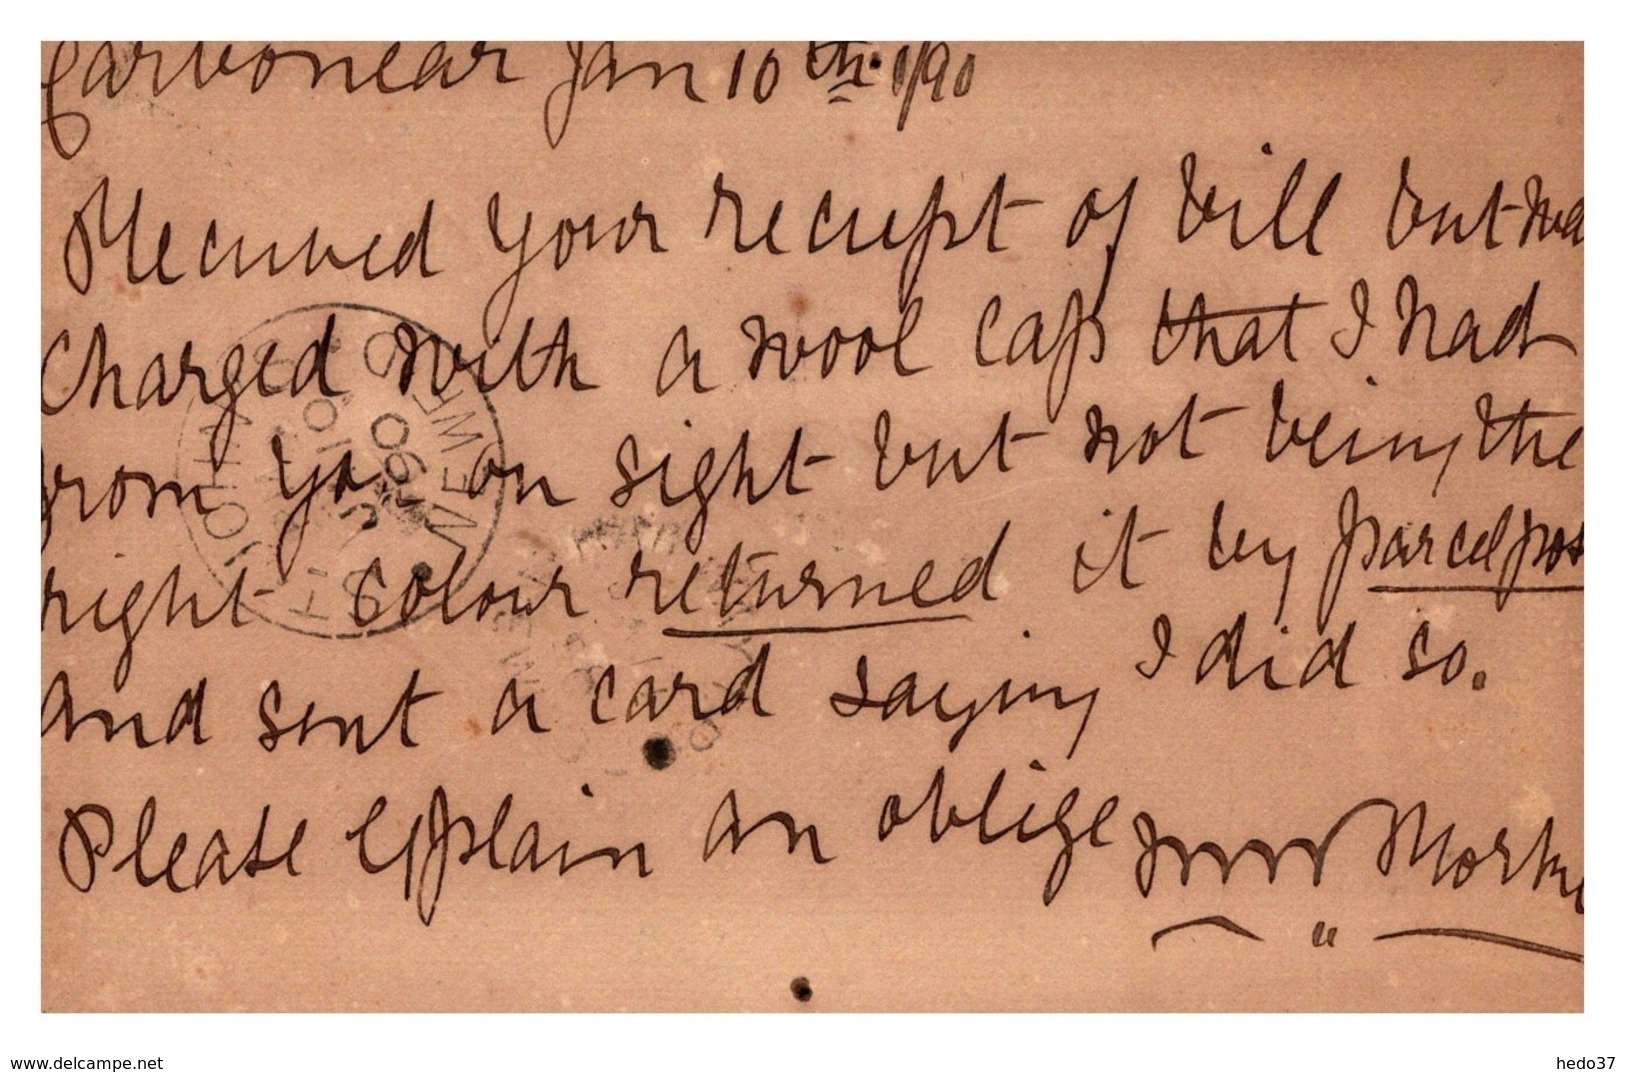 Carbonear Jan 10th 1/90
Recieved your reciept of bill but wa
Charged with a wool cap that I had
from yo on sight but not being the
right colour returned it by parcel pos
and sent a card saying I did so.
Please Explain an oblige Morki
JOHN NEWFO
JA 10
90
www.delcampe.net
hedo37